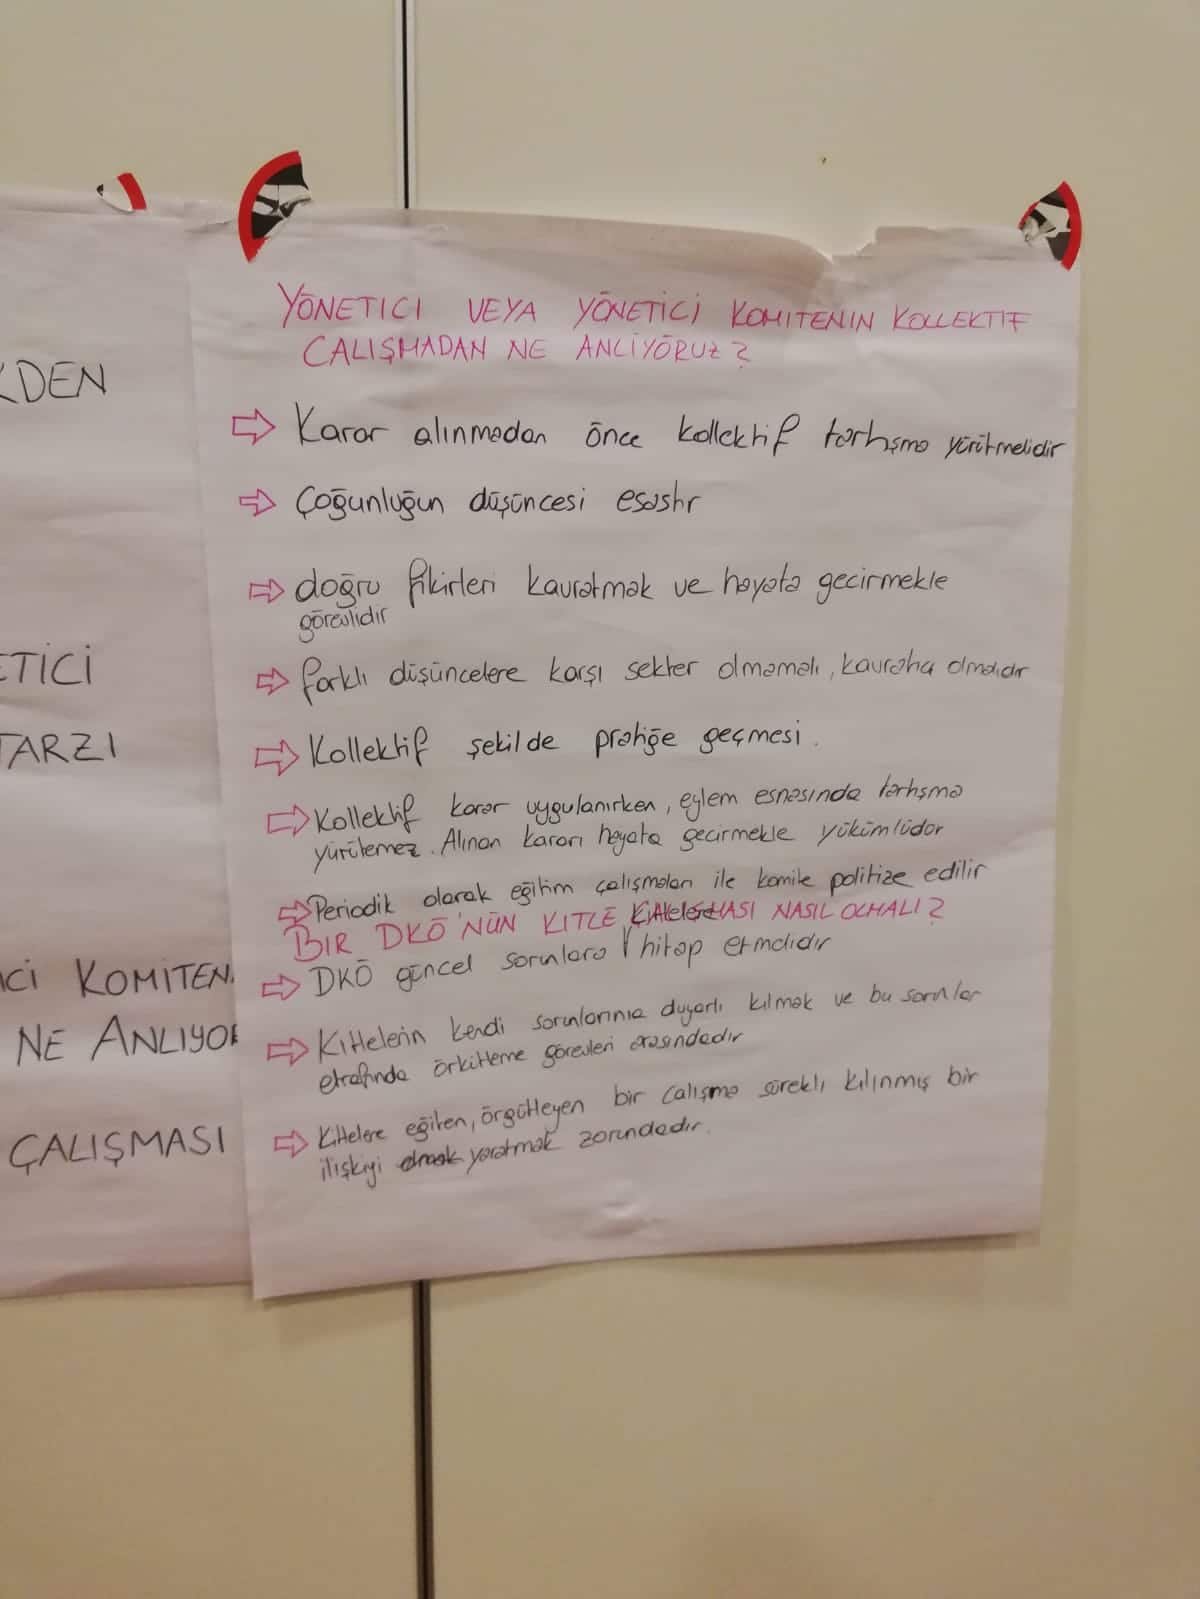 KDEN
ETİCİ
TARZI
İCİ KOMİTEN
NE ANLIYOR
ÇALIŞMASI
YÖNETICI VEYA YÖNETİCİ KOMITENIN KOLLEKTIF
CALIŞMADAN NE ANLIYORUZ?
⇨ Karar alınmadan önce kollektif tartışma yürütmelidir
⇨ Çoğunluğun düşüncesi esastır
⇨ doğru fikirleri kavratmak ve hayata gecirmekle
görevlidir
⇨ farklı düşüncelere karşı sekter olmamalı, kavratıcı olmalıdır
⇨ Kollektif şekilde pratiğe geçmesi.
⇨ Kollektif karar uygulanırken, eylem esnasında tartışma
yürütemez. Alınan kararı hayata gecirmekle yükümlüdür
⇨ Periodik olarak eğitim çalışmaları ile komite politize edilir
BIR DKÖ'NÜN KITLE ÇALIŞMASI NASIL OLMALI?
⇨ DKÖ güncel sorunlara hitap etmelidir
⇨ Kitlelerin kendi sorunlarına duyarlı kılmak ve bu sorunlar
etrafında örkütleme görevleri arasındadır
⇨ Kitlelere eğiten, örgütleyen bir calışma sürekli kılınmış bir
ilişkiyi yaratmak zorundadır.